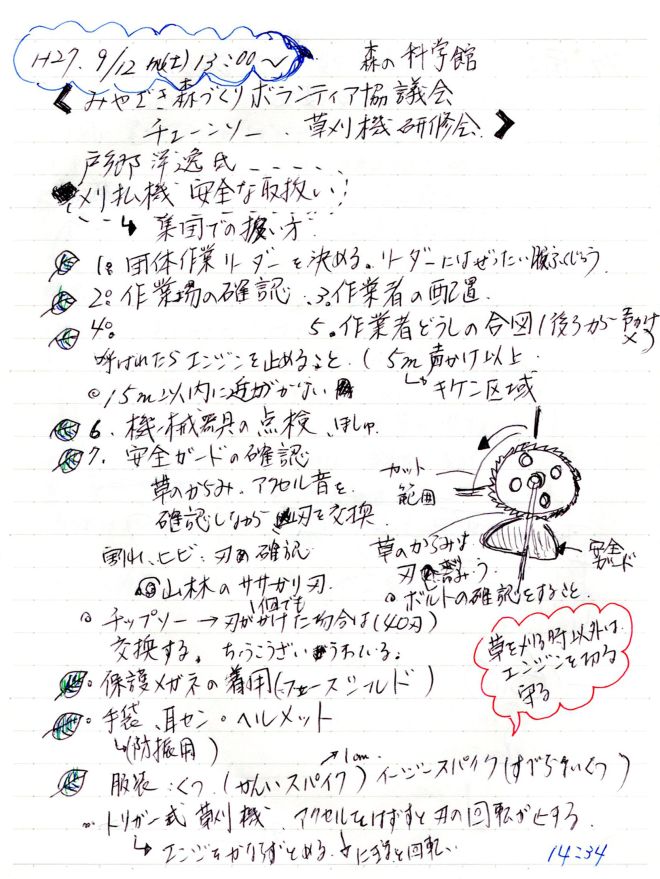 H27. 9/12 (土) 13:00〜
森の科学館
みやざき森づくりボランティア協議会
チェーンソー、草刈機研修会
戸郷 洋逸氏
刈払機 安全な取扱い
↳ 集団での扱い方
1. 団体作業リーダーを決める。リーダーにはぜったい服ふくじゅう
2. 作業場の確認 3. 作業者の配置
4. 5. 作業者どうしの合図(後ろから声かけ×)
呼ばれたらエンジンを止めること。(5m 声かけ以上
↳ キケン区域
◎15m以内に近づかない
6. 機械器具の点検、ほしゅ
7. 安全ガードの確認
草のからみ、アクセル音を
確認しながら刃を交換
割れ、ヒビ、刃の確認
山林のササかり刃
カット
範囲
草のからみは
安全
ガード
ボルトの確認をすること
1個でも
チップソー → 刃がかけた場合は(40刃)
交換する。
草を刈る時以外は
エンジンを切る
守る
保護メガネの着用(フェースシールド)
手袋、耳セン・ヘルメット
↳(防振用)
→1cm
服装:くつ(かんいスパイク)イージースパイク(すべらないくつ)
トリガー式草刈機 アクセルをはずすと刃の回転が止する
↳ エンジンをかならずとめる
14:34